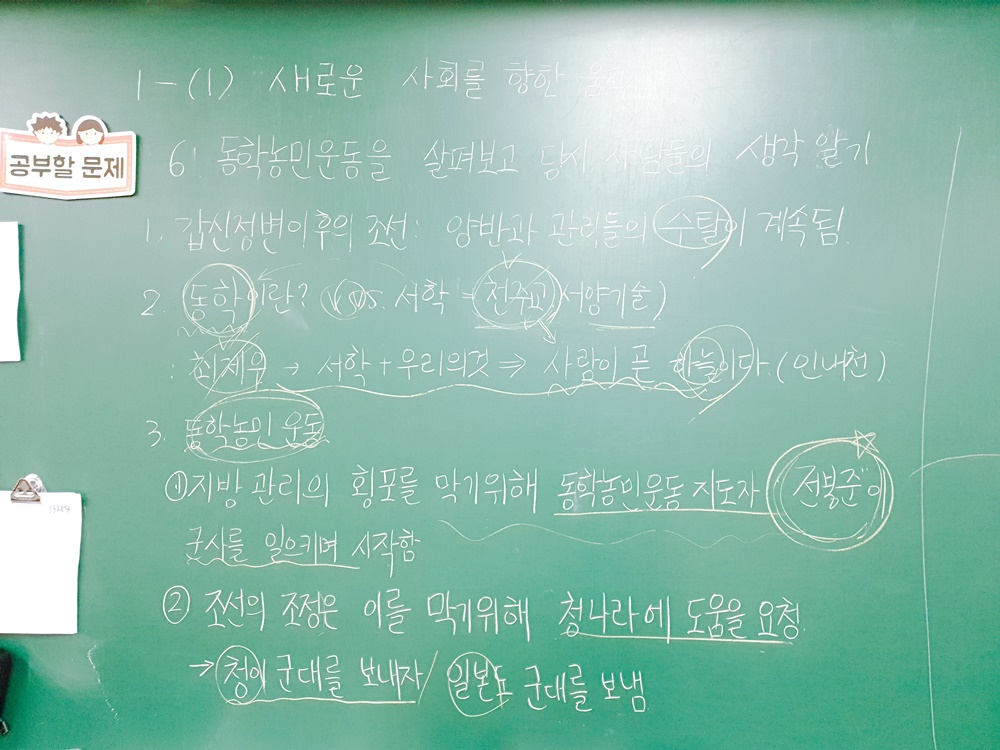 1-(1) 새로운 사회를 향한
공부할 문제
6. 동학농민운동을 살펴보고 당시 사람들의 생각 알기
1. 갑신정변이후의 조선: 양반과 관리들의 수탈이 계속됨.
2. 동학이란? VS. 서학 = 천주교 서양기술)
: 최제우 → 서학 + 우리의것 ⇒ 사람이 곧 하늘이다. (인내천)
3. 동학농민운동
① 지방 관리의 횡포를 막기위해 동학농민운동 지도자 전봉준이
군사를 일으키며 시작함
② 조선의 조정은 이를 막기위해 청나라에 도움을 요청
→ 청이 군대를 보내자 / 일본도 군대를 보냄